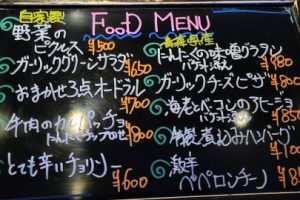 FOOD MENU
自家製
野菜の
ピクルス ¥500
ガーリックグリーンサラダ ¥650
おまかせ3点オードブル ¥700
牛肉のカルパッチョ ¥800
とても辛いチョリソー ¥600
の味噌グラタン
バゲット添え ¥880
ガーリックチーズピザ ¥8
海老とベーコンのアヒージョ
バゲット添え ¥85
特製煮込みハンバーグ
ペペロンチーノ ¥85